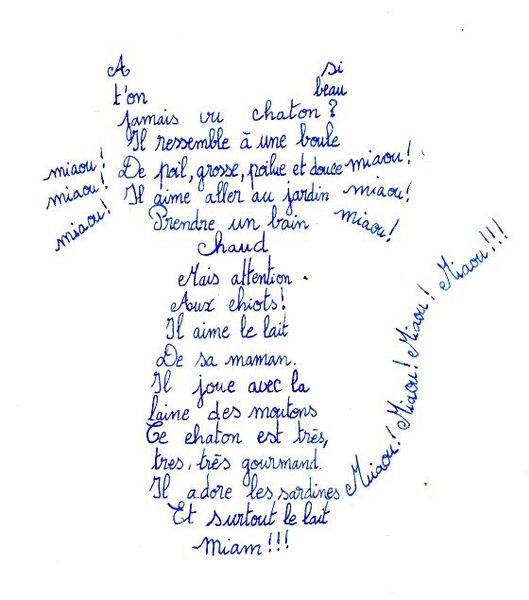 A si
t'on beau
jamais vu chaton ?
Il ressemble à une boule
miaou! De poil, grosse, poilue et douce miaou!
miaou! Il aime aller au jardin miaou!
miaou! Prendre un bain miaou!
Chaud
Mais attention
Aux chiots!
Il aime le lait
De sa maman.
Il joue avec la
laine des moutons
Ce chaton est très,
tres, très gourmand.
Il adore les sardines Miaou! Miaou! Miaou! Miaou!!!
Et surtout le lait
Miam!!!